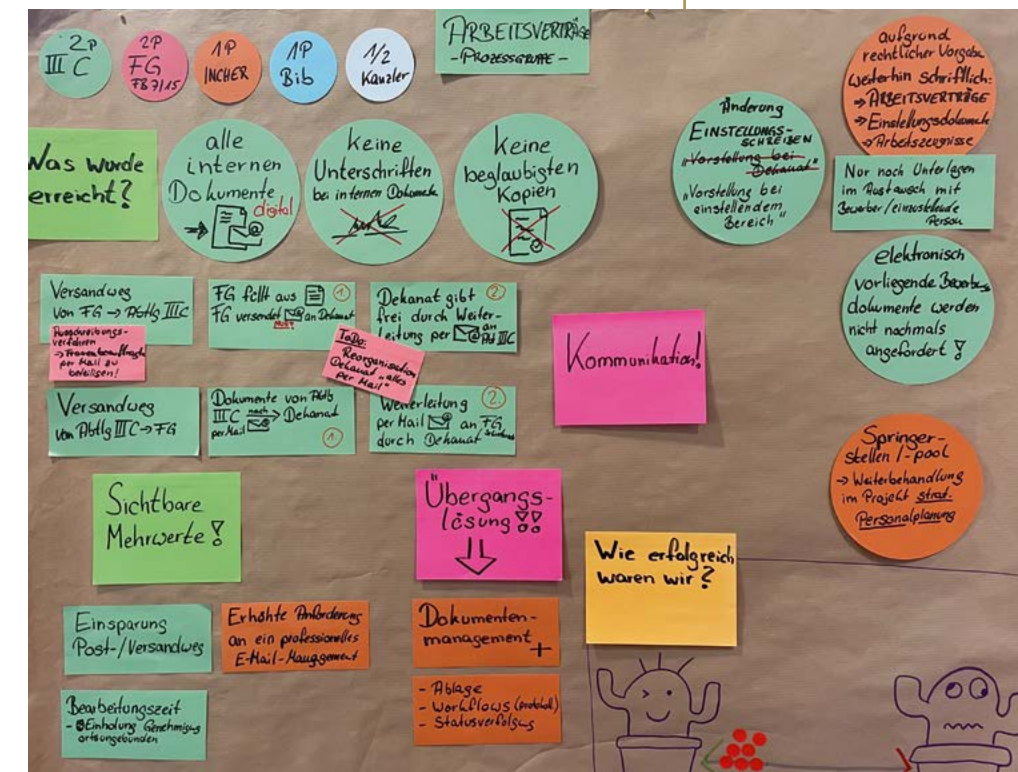 2P
III C
2P
FG
FB 7/15
1P
INCHER
1P
Bib
1/2
Kanzler
ARBEITSVERTRÄGE
- PROZESSGRUPPE -
aufgrund
rechtlicher Vorgabe
weiterhin schriftlich:
→ ARBEITSVERTRÄGE
→ Einstellungsdokumente
→ Arbeitszeugnisse
Was wurde
erreicht?
alle
internen
Dokumente
digital
keine
Unterschriften
bei internen Dokumente
Keine
beglaubigten
Kopien
Änderung
EINSTELLUNGS-
SCHREIBEN
"Vorstellung bei
Dekanat"
"Vorstellung bei
einstellendem
Bereich"
Nur noch Unterlagen
im Austausch mit
Bewerber/einzustellende
Person
elektronisch
vorliegende Bewerbungs
dokumente werden
nicht nochmals
angefordert!
Versandweg
von FG → Abtlg III C
Ausschreibungs-
verfahren
→ Frauenbeauftragte
per Mail zu
beteiligen!
FG füllt aus ①
FG versendet @ an Dekanat
Dekanat gibt ②
frei durch Weiter-
leitung per @ an Abt III C
ToDo:
Reorganisation
Dekanat "alles
per Mail"
Kommunikation!
Versandweg
von Abtlg III C → FG
Dokumente von Abtlg
III C nach → Dekanat
per Mail @
①
Weiterleitung ②
per Mail @ an FG
durch Dekanat
Springer-
stellen /-pool
→ Weiterbehandlung
im Projekt strat.
Personalplanung
Sichtbare
Mehrwerte!
Übergangs-
lösung!!
Wie erfolgreich
waren wir?
Einsparung
Post-/Versandweg
Erhöhte Anforderung
an ein professionelles
E-Mail-Management
Dokumenten-
management
+
Bearbeitungszeit
- Einholung Genehmigung
ortsungebunden
- Ablage
- Workflows (protokoll)
- Statusverfolgung